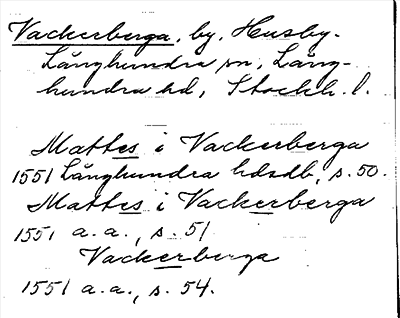 Vackerberga, by, Husby-
Långhundra sn, Lång-
hundra hd, Stockh. l.
Mattes i Vackerberga
1551 Långhundra hdsdb, s. 50.
Mattes i Vackerberga
1551 a. a., s. 51
Vackerberga
1551 a. a., s. 54.